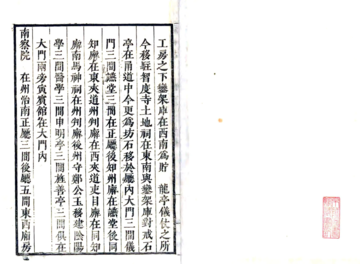 工房之下鑾架庫在西南爲貯　龍亭儀仗之所
今移駐普度寺土地祠在東南與鑾架庫對戒石
亭在甬道中今更爲坊石移於廳內大門三間儀
門三間讌堂三間在正廳後知州廨在讌堂後同
知廨在東夾道州判廨在西夾道吏目廨在同知
廨南馬神祠在州判廨後州守鄭公玉移建陰陽
學三間醫學三間申明亭三間旌善亭三間俱在
大門兩旁寅賓館在大門內
南察院　在州治南正廳三間後廳五間東西廂房